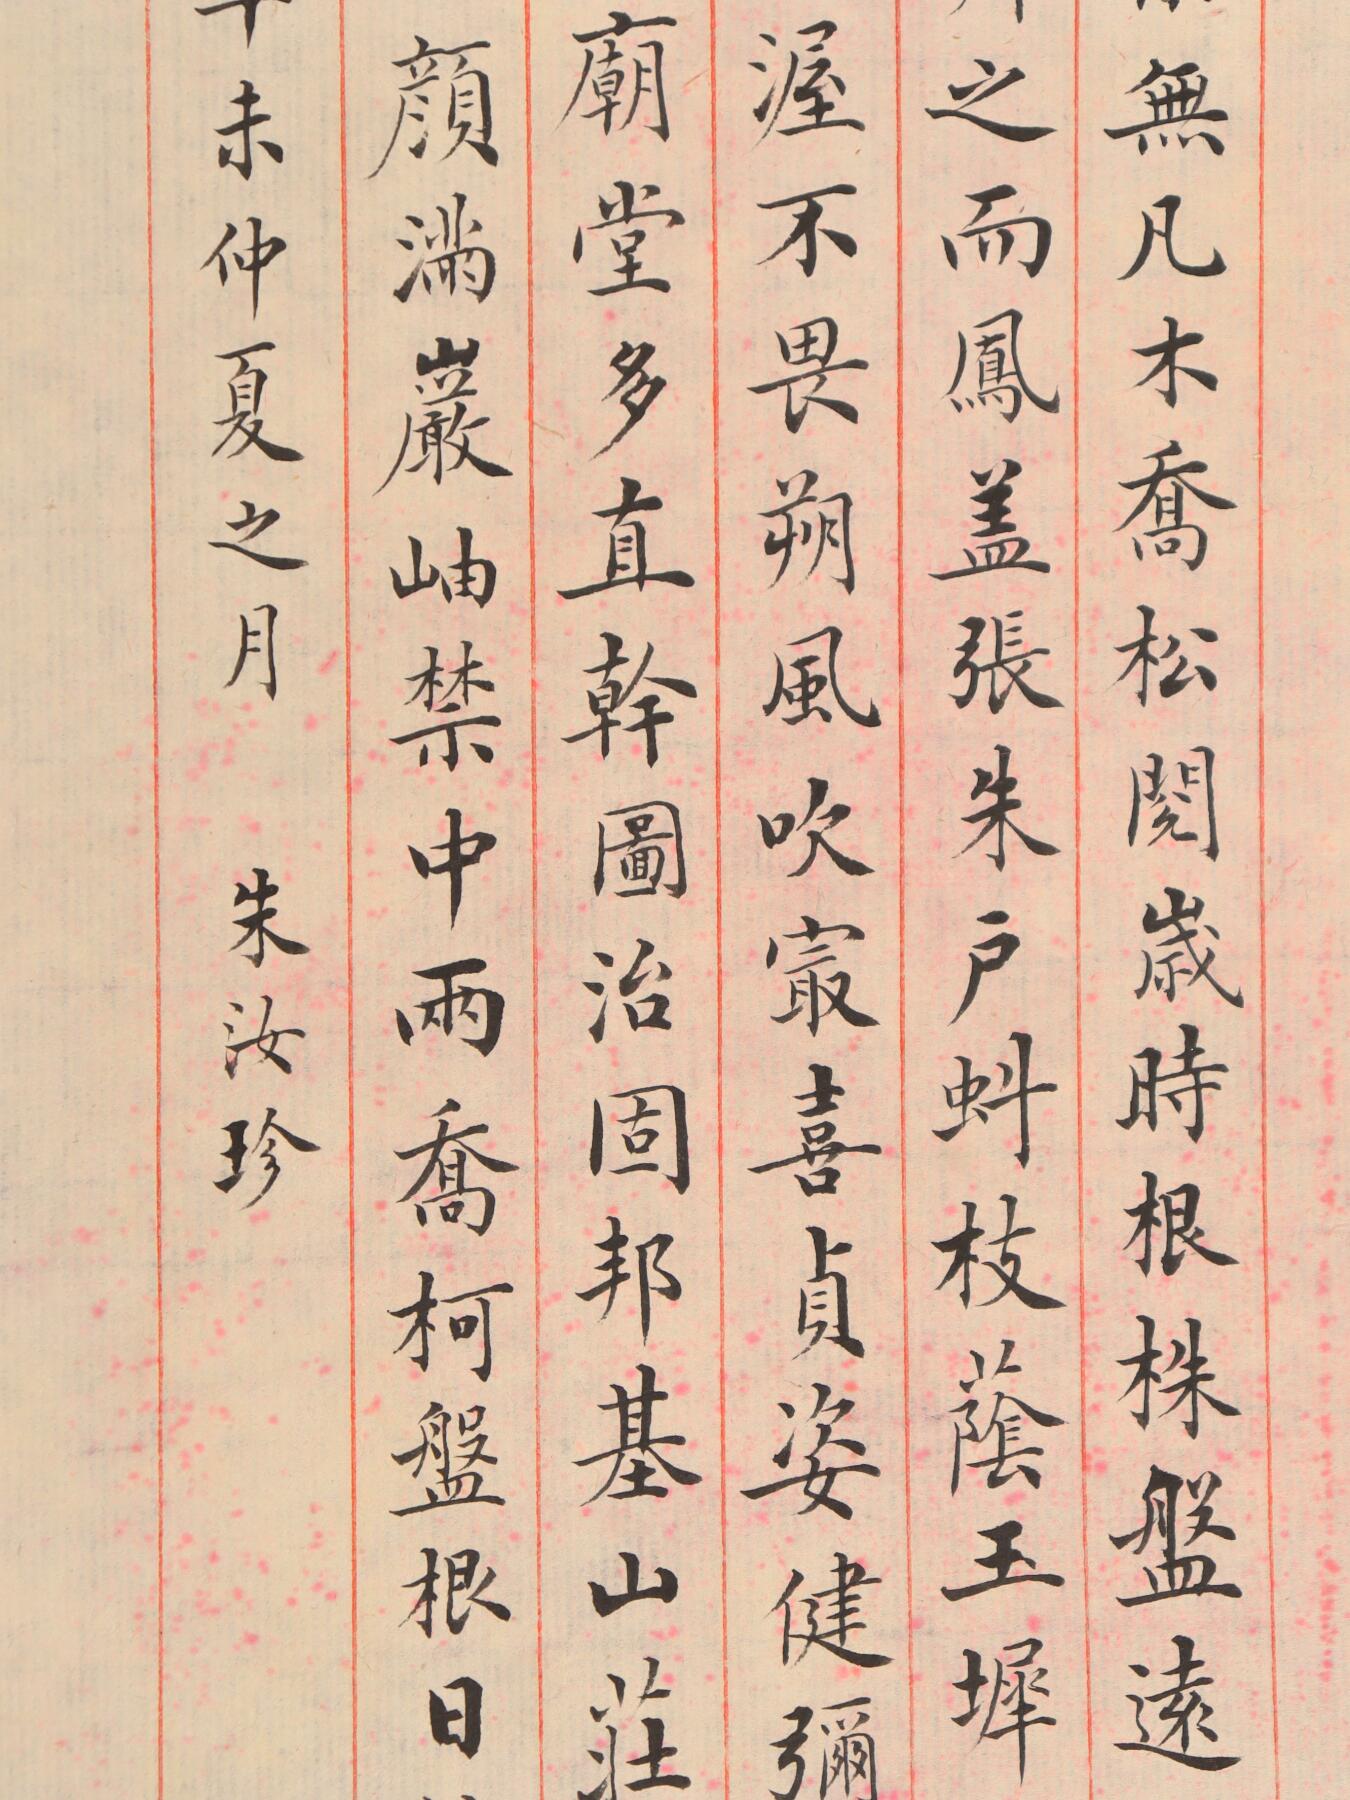 無凡木喬松閱歲時根株盤遠
之而鳳盖張朱戶蚪枝蔭玉墀
渥不畏朔風吹冣喜貞姿健彌
廟堂多直幹圖治固邦基山莊
顏滿巖岫禁中兩喬柯盤根日
未仲夏之月 朱汝珍